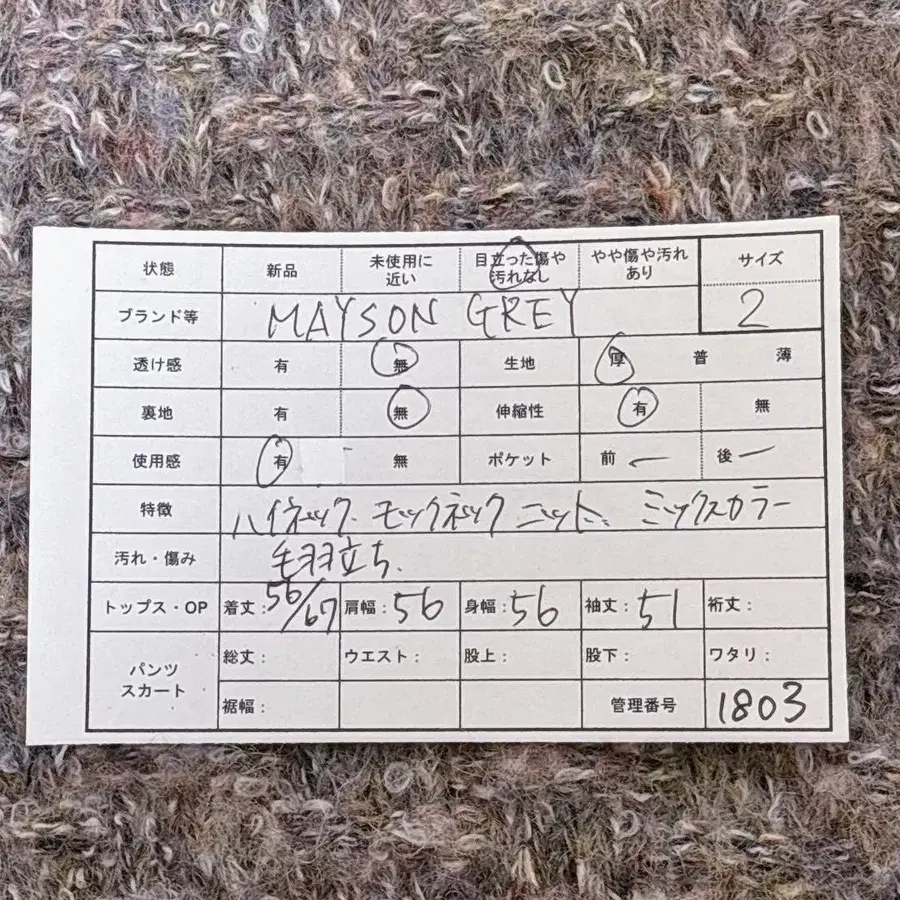 状態 新品 未使用に近い 目立った傷や汚れなし やや傷や汚れあり サイズ
ブランド等 MAYSON GREY 2
透け感 有 無 生地 厚 普 薄
裏地 有 無 伸縮性 有 無
使用感 有 無 ポケット 前 ー 後 ー
特徴 ハイネック、モックネック ニット、ミックスカラー
汚れ・傷み 毛羽立ち、
トップス・OP 着丈:56/67 肩幅:56 身幅:56 袖丈:51 裄丈:
パンツ スカート 総丈: ウエスト: 股上: 股下: ワタリ:
裾幅: 管理番号 1803